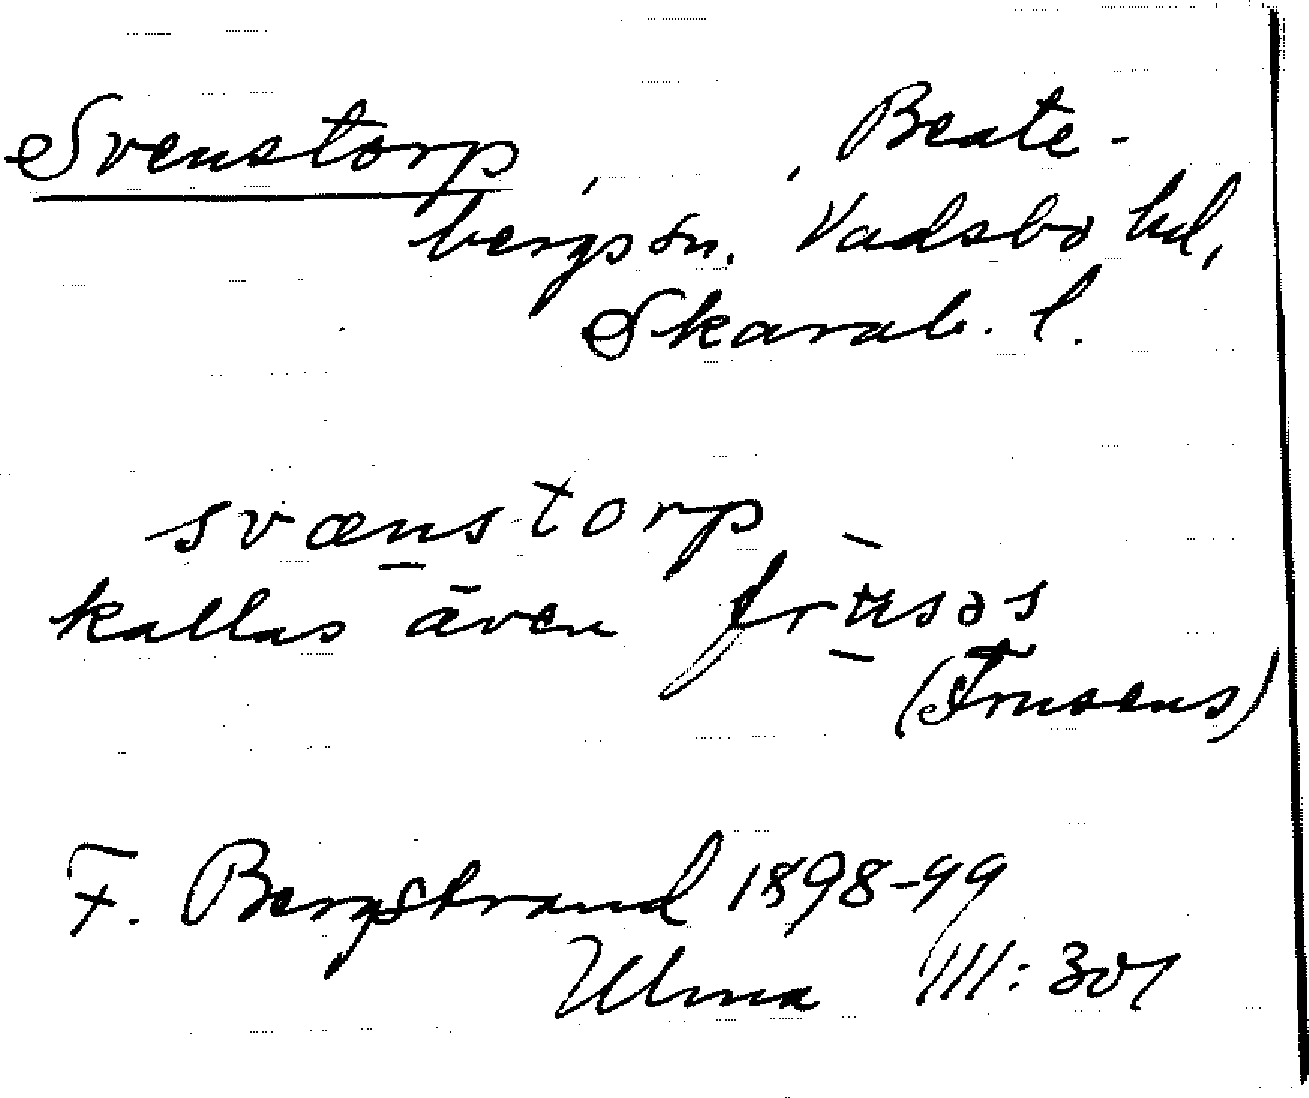 Svenstorp, , Beate-
bergs sn. Vadsbo hd,
Skarab. l.
svænstorp
kallas även frusəs
(Frusens)
F. Bergstrand 1898-99
Ulma 111:301